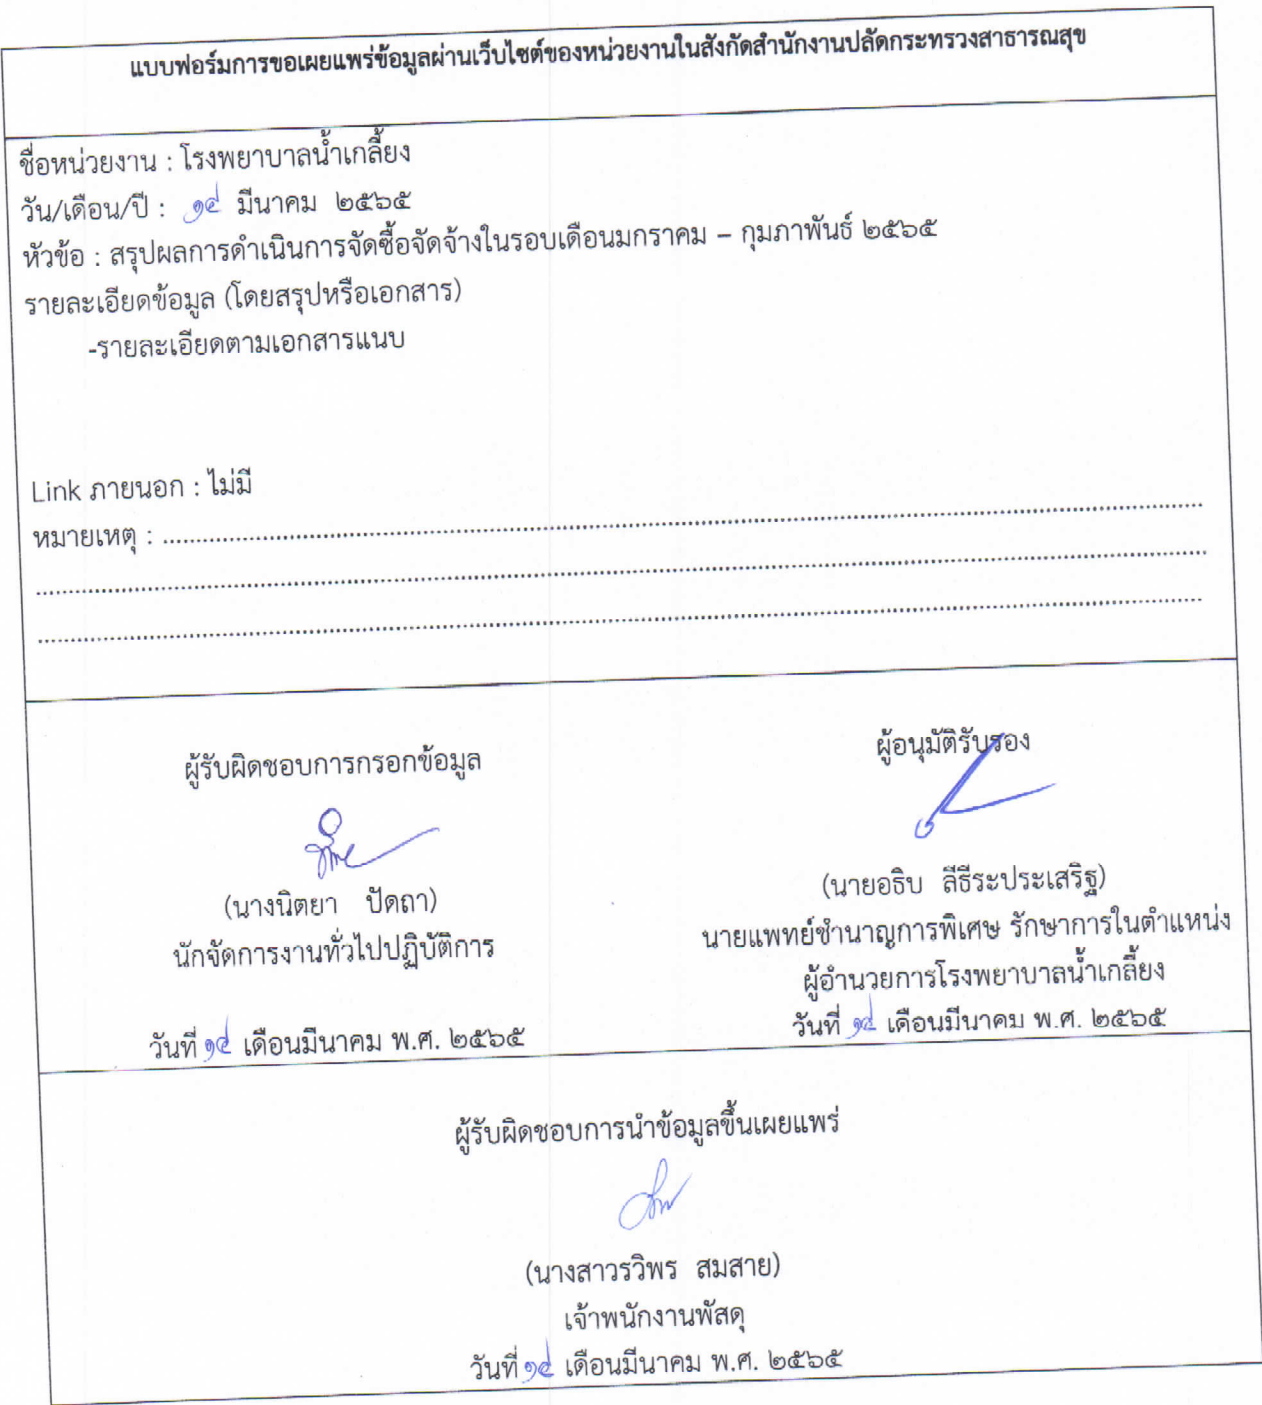 แบบฟอร์มการขอเผยแพร่ข้อมูลผ่านเว็บไซต์ของหน่วยงานในสังกัดสำนักงานปลัดกระทรวงสาธารณสุข
ชื่อหน่วยงาน : โรงพยาบาลน้ำเกลี้ยง
วัน/เดือน/ปี : ๑๔ มีนาคม ๒๕๖๕
หัวข้อ : สรุปผลการดำเนินการจัดซื้อจัดจ้างในรอบเดือนมกราคม – กุมภาพันธ์ ๒๕๖๕
รายละเอียดข้อมูล (โดยสรุปหรือเอกสาร)
-รายละเอียดตามเอกสารแนบ
Link ภายนอก : ไม่มี
หมายเหตุ :
ผู้รับผิดชอบการกรอกข้อมูล
(นางนิตยา ปัดถา)
นักจัดการงานทั่วไปปฏิบัติการ
วันที่ ๑๔ เดือนมีนาคม พ.ศ. ๒๕๖๕
ผู้อนุมัติรับรอง
(นายอธิบ ลีธีระประเสริฐ)
นายแพทย์ชำนาญการพิเศษ รักษาการในตำแหน่ง
ผู้อำนวยการโรงพยาบาลน้ำเกลี้ยง
วันที่ ๑๔ เดือนมีนาคม พ.ศ. ๒๕๖๕
ผู้รับผิดชอบการนำข้อมูลขึ้นเผยแพร่
(นางสาวรวิพร สมสาย)
เจ้าพนักงานพัสดุ
วันที่ ๑๔ เดือนมีนาคม พ.ศ. ๒๕๖๕